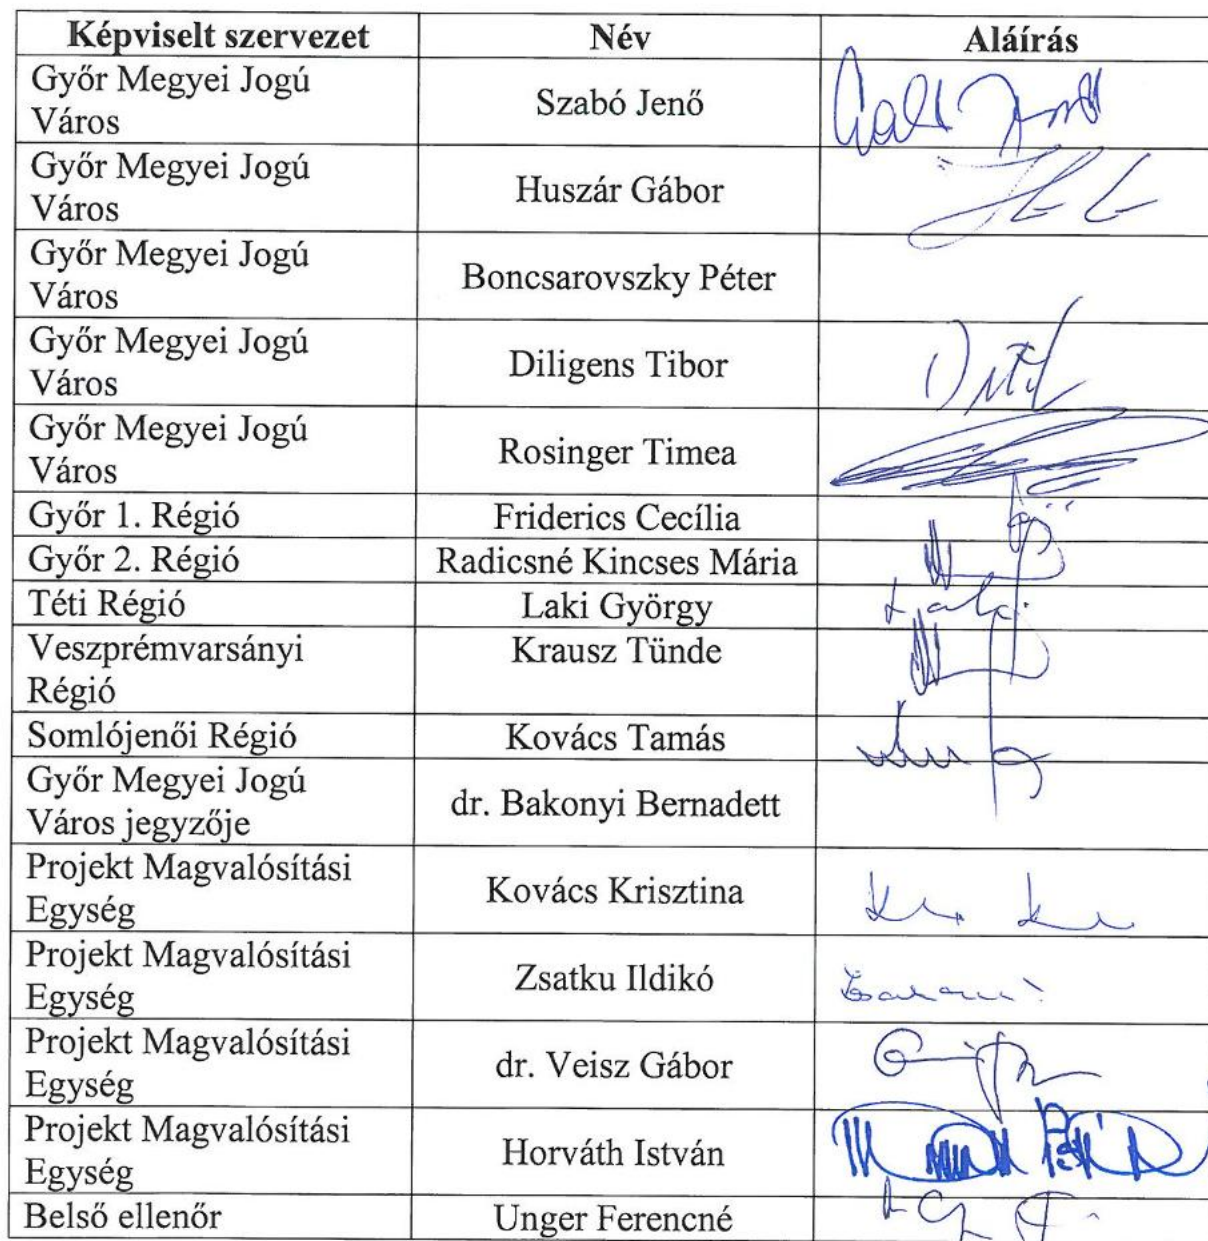 Képviselt szervezet Név Aláírás
Győr Megyei Jogú
Város
Szabó Jenő
Győr Megyei Jogú
Város
Huszár Gábor
Győr Megyei Jogú
Város
Boncsarovszky Péter
Győr Megyei Jogú
Város
Diligens Tibor
Győr Megyei Jogú
Város
Rosinger Timea
Győr 1. Régió Friderics Cecília
Győr 2. Régió Radicsné Kincses Mária
Téti Régió Laki György
Veszprémvarsányi
Régió
Krausz Tünde
Somlójenői Régió Kovács Tamás
Győr Megyei Jogú
Város jegyzője
dr. Bakonyi Bernadett
Projekt Magvalósítási
Egység
Kovács Krisztina
Projekt Magvalósítási
Egység
Zsatku Ildikó
Projekt Magvalósítási
Egység
dr. Veisz Gábor
Projekt Magvalósítási
Egység
Horváth István
Belső ellenőr Unger Ferencné